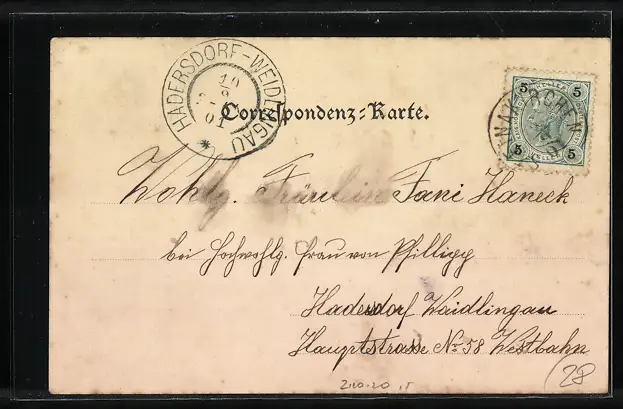 HADERSDORF-WEIDLINGAU
10
8
01
*
5 5
5 5
Correspondenz-Karte.
Wohlg. Fräulein Fani Haneck
bei Hochwohlg. Frau von Philligg
Hadersdorf Waidlingau
Hauptstrasse No 58 Westbahn
28